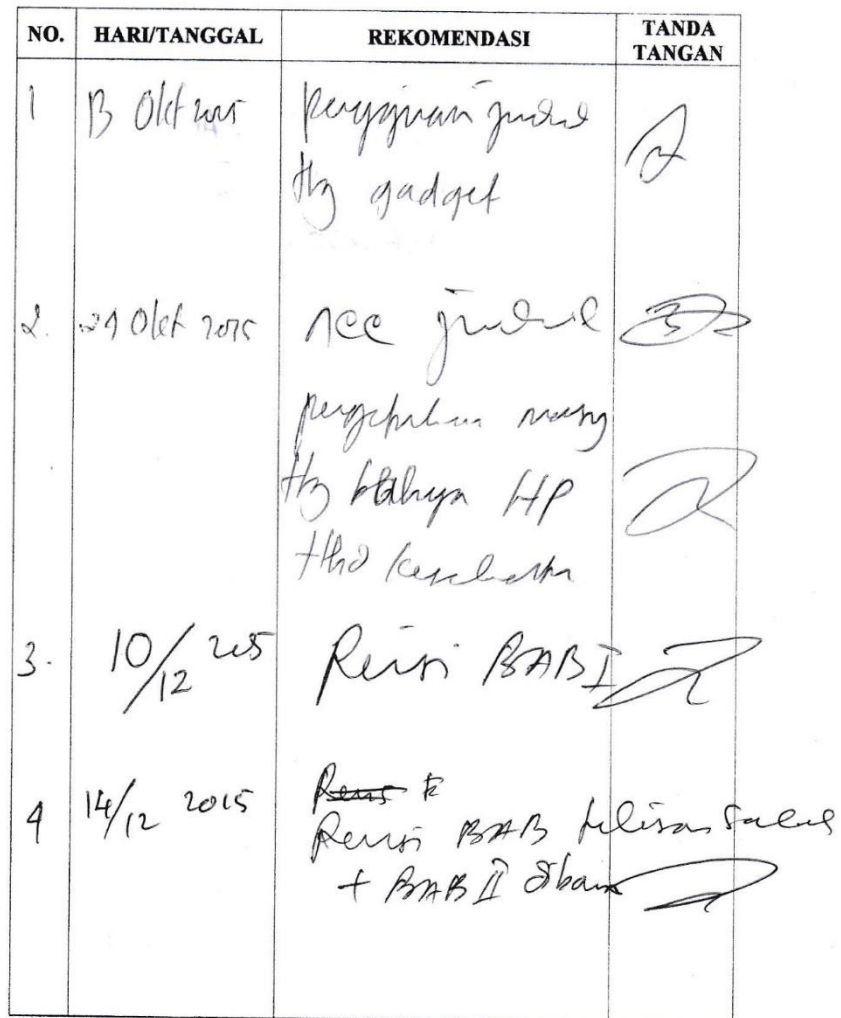 NO. HARI/TANGGAL REKOMENDASI TANDA TANGAN
1 13 Okt 2015 pengajuan judul
ttg gadget
2. 29 Okt 2015 ACC judul
pengetahuan
ttg bahaya HP
thd kesehatan
3. 10/12 2015 Revisi BAB I
4 14/12 2015
Revisi BAB tulisan salah
+ BAB II dibawa